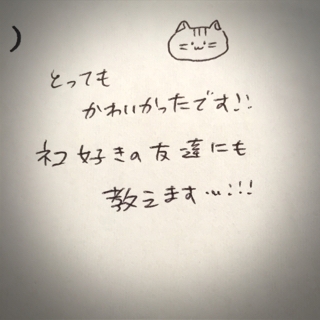 とっても
かわいかったです!!
ネコ好きの友達にも
教えます…!!!